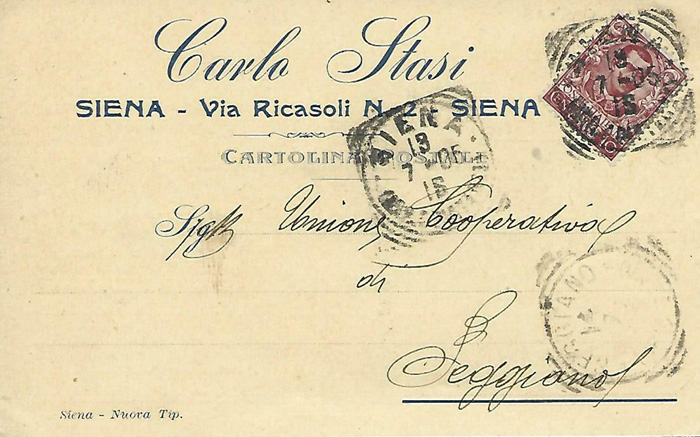 Carlo Stasi
SIENA - Via Ricasoli N. 2 - SIENA
CARTOLINA POSTALE
SIENA
13
7 - 05
15
13
7 - 05
15
Sigr Unione Cooperativa
di
Seggiano
SEGGIANO
Siena - Nuova Tip.